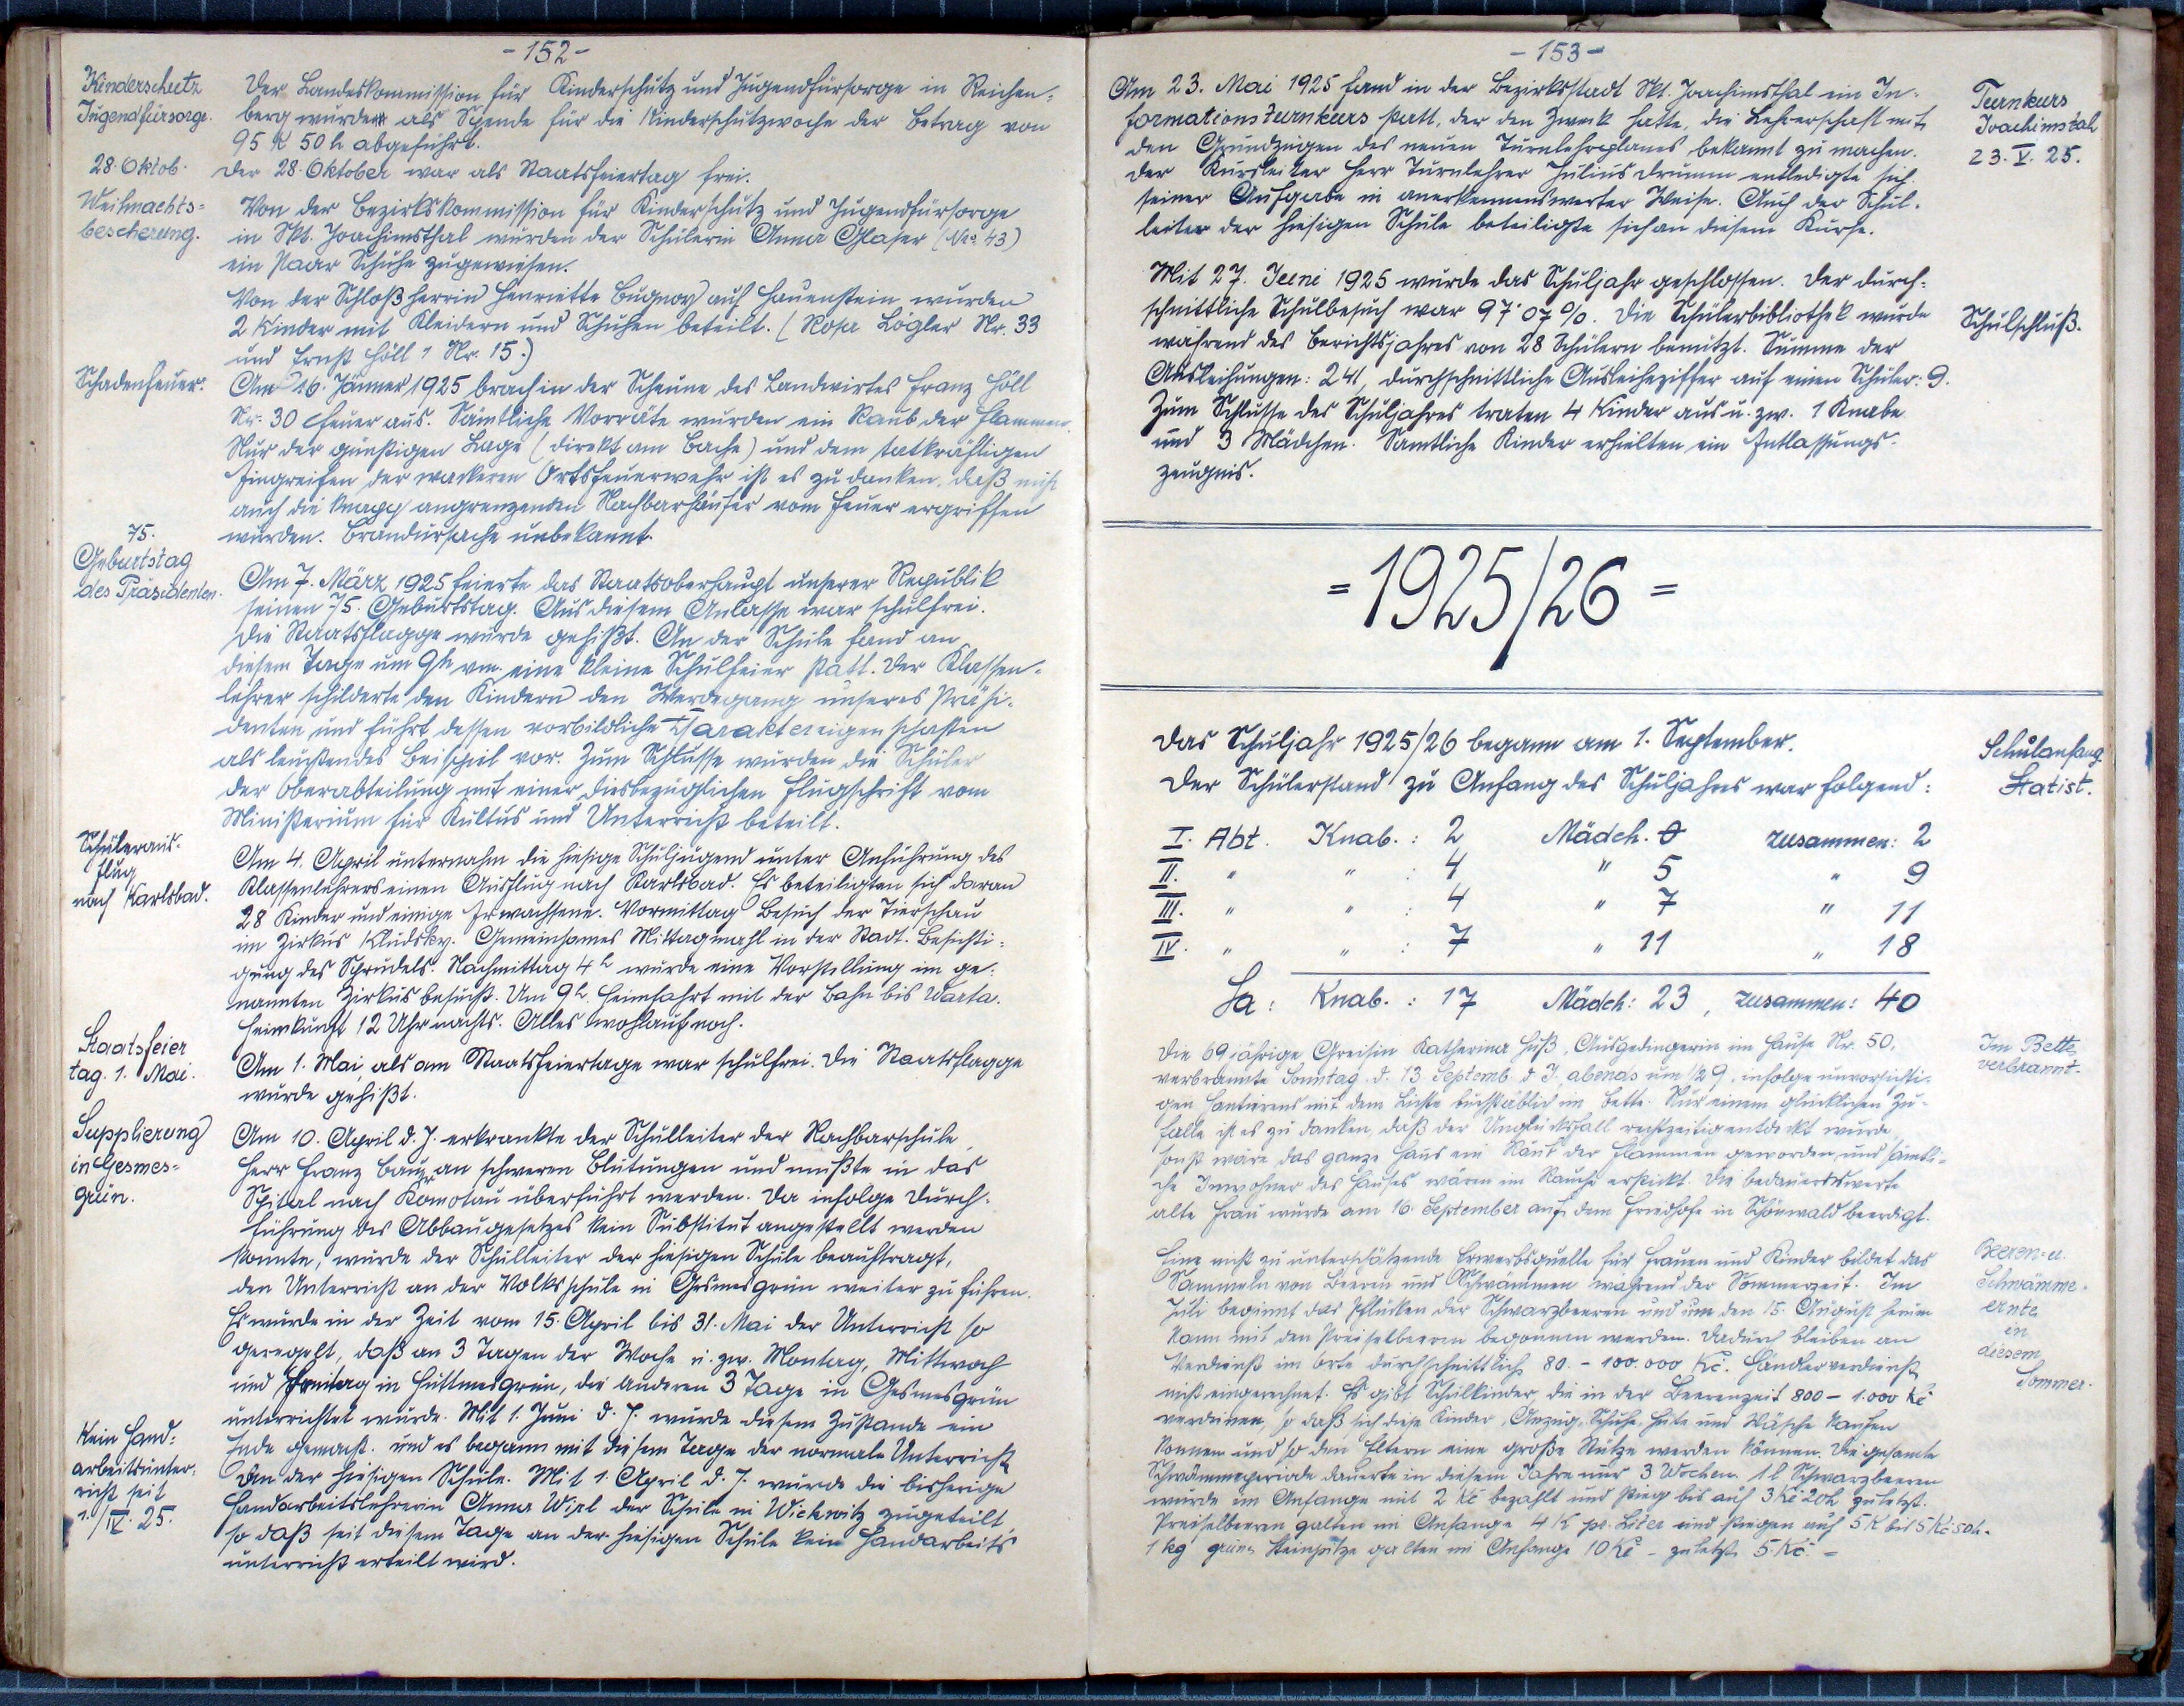 -152-
Kinderschutz
Jugendfürsorge.
Der Landeskommission für Kinderschutz und Jugendfürsorge in Reichen-
berg wurde als Spende für die Kinderschutzwoche der Betrag von
95 K 50 h abgeführt.
28. Oktob.
Der 28. Oktober war als Staatsfeiertag frei.
Weihnachts-
bescherung.
Von der Bezirkskommission für Kinderschutz und Jugendfürsorge
in Skt. Joachimsthal wurden der Schülerin Anna Glaser (Nro. 43)
ein Paar Schuhe zugewiesen.
Von der Schloßherrin Henriette Buquoy auf Hauenstein wurden
2 Kinder mit Kleidern und Schuhen beteilt. (Rosa Lögler Nr. 33
und Ernst Höll 1 Nr. 15.)
Schadenfeuer.
Am 16. Jänner 1925 brach in der Scheune des Landwirtes Franz Höll
Nr. 30 Feuer aus. Sämtliche Vorräte wurden ein Raub der Flammen.
Nur der günstigen Lage (direkt am Bache) und dem tatkräftigen
Eingreifen der wackeren Ortsfeuerwehr ist es zu danken, daß nicht
auch die knapp angrenzenden Nachbarhäuser vom Feuer ergriffen
wurden. Brandursache unbekannt.
75.
Geburtstag
des Präsidenten.
Am 7. März 1925 feierte das Staatsoberhaupt unserer Republik
seinen 75. Geburtstag. Aus diesem Anlasse war schulfrei.
Die Staatsflagge wurde gehißt. An der Schule fand an
diesem Tage um 9h vm. eine kleine Schulfeier statt. Der Klassen-
lehrer schilderte den Kindern den Werdegang unseres Präsi-
denten und führt dessen vorbildliche Charaktereigenschaften
als leuchtendes Beispiel vor. Zum Schlusse wurden die Schüler
der Oberabteilung mit einer diesbezüglichen Flugschrift vom
Ministerium für Kultus und Unterricht beteilt.
Schüleraus-
flug
nach Karlsbad.
Am 4. April unternahm die hiesige Schuljugend unter Anführung des
Klassenlehrers einen Ausflug nach Karlsbad. Es beteiligten sich daran
28 Kinder und einige Erwachsene. Vormittag Besuch der Tierschau
im Zirkus Kludsky. Gemeinsames Mittagmahl in der Stadt. Besichti-
gung des Sprudels. Nachmittag 4h wurde eine Vorstellung im ge-
nannten Zirkus besucht. Um 9h Heimfahrt mit der Bahn bis Warta.
Heimkunft 12 Uhr nachts. Alles wohlauf noch.
Staatsfeier
tag. 1. Mai.
Am 1. Mai als am Staatsfeiertage war schulfrei. Die Staatsflagge
wurde gehißt.
Supplierung
in Gesmes-
grün.
Am 10. April d. J. erkrankte der Schulleiter der Nachbarschule
Herr Franz Bauer an schweren Blutungen und mußte in das
Spital nach Komotau überführt werden. Da infolge Durch-
führung des Abbaugesetzes kein Substitut angestellt werden
konnte, wurde der Schulleiter der hiesigen Schule beauftragt,
den Unterricht an der Volksschule in Gesmesgrün weiter zu führen.
Es wurde in der Zeit vom 15. April bis 31. Mai der Unterricht so
geregelt, daß an 3 Tagen der Woche u. zw. Montag, Mittwoch
und Freitag in Hüttmesgrün, die anderen 3 Tage in Gesmesgrün
unterrichtet wurde. Mit 1. Juni d. J. wurde diesem Zustande ein
Ende gemacht. und es begann mit diesem Tage der normale Unterricht
Kein Hand-
arbeitsunter-
richt seit
1./IV. 25.
an der hiesigen Schule. Mit 1. April d. J. wurde die bisherige
Handarbeitslehrerin Anna Wixl der Schule in Wickwitz zugeteilt
so daß seit diesem Tage an der hiesigen Schule kein Handarbeits
unterricht erteilt wird.
-153-
Am 23. Mai 1925 fand in der Bezirksstadt Skt. Joachimsthal ein In-
formationsturnkurs statt, der den Zweck hatte, die Lehrerschaft mit
den Grundzügen des neuen Turnlehrplanes bekannt zu machen.
Der Kursleiter Herr Turnlehrer Julius Drumm entledigte sich
seiner Aufgabe in anerkennenswerter Weise. Auch der Schul-
leiter der hiesigen Schule beteiligte sich an diesem Kurse.
Turnkurs
Joachimstal
23. V. 25.
Mit 27. Juni 1925 wurde das Schuljahr geschlossen. Der durch-
schnittliche Schulbesuch war 97·07%. Die Schülerbibliothek wurde
während des Berichtsjahres von 28 Schülern benützt. Summe der
Ausleihungen: 241, durchschnittliche Ausleihziffer auf einen Schüler: 9.
Zum Schlusse des Schuljahres traten 4 Kinder aus u. zw. 1 Knabe
und 3 Mädchen. Sämtliche Kinder erhielten ein Entlassungs-
zeugnis.
Schulschluß.
=1925/26=
Das Schuljahr 1925/26 begann am 1. September.
Der Schülerstand zu Anfang des Schuljahres war folgend:
Schulanfang.
Statist.
I. Abt. Knab.: 2 Mädch. 0 zusammen: 2
II. " " : 4 " 5 " 9
III. " " : 4 " 7 " 11
IV. " " : 7 " 11 " 18
Sa: Knab.: 17 Mädch: 23, zusammen: 40
Die 69 jährige Greisin Katharina Huß, Ausgedingerin im Hause Nr. 50,
verbrannte Sonntag d. 13. Septemb. d J. abends um 1/2 9, infolge unvorsichti-
gen Hantierens mit dem Lichte buchstäblich im Bette. Nur einem glücklichen Zu-
falle ist es zu danken, daß der Unglücksfall rechtzeitig entdeckt wurde,
sonst wäre das ganze Haus ein Raub der Flammen geworden und sämtli-
che Inwohner des Hauses wären im Rauche erstickt. Die bedauernswerte
alte Frau wurde am 16. September auf dem Friedhofe in Schönwald beerdigt.
Im Bette
verbrannt.
Eine nicht zu unterschätzende Erwerbsquelle für Frauen und Kinder bildet das
Sammeln von Beeren und Schwämmen während der Sommerzeit. Im
Juli beginnt das Pflücken der Schwarzbeeren und um den 15. August herum
kann mit den Preiselbeeren begonnen werden. Dadurch bleiben an
Verdienst im Orte durchschnittlich 80.-100.000 Kč. Händlerverdienst
nicht eingerechnet. Es gibt Schulkinder die in der Beerenzeit 800 - 1.000 Kč
verdienen, so daß sich diese Kinder, Anzug, Schuhe, Hüte und Wäsche kaufen
können und so den Eltern eine große Stütze werden können. Die gesamte
Schwämmeperiode dauerte in diesem Jahre nur 3 Wochen. 1 l Schwarzbeeren
wurde im Anfange mit 2 Kč bezahlt und stieg bis auf 3 Kč 20h zuletzt.
Preiselbeeren galten im Anfange 4 K pr. Liter und stiegen auf 5 K bis 5 Kč 50h.
1 kg grüne Steinpilze galten im Anfange 10 Kč - zuletzt 5 Kč. -
Beeren- u.
Schwämme-
ernte
in
diesem
Sommer.